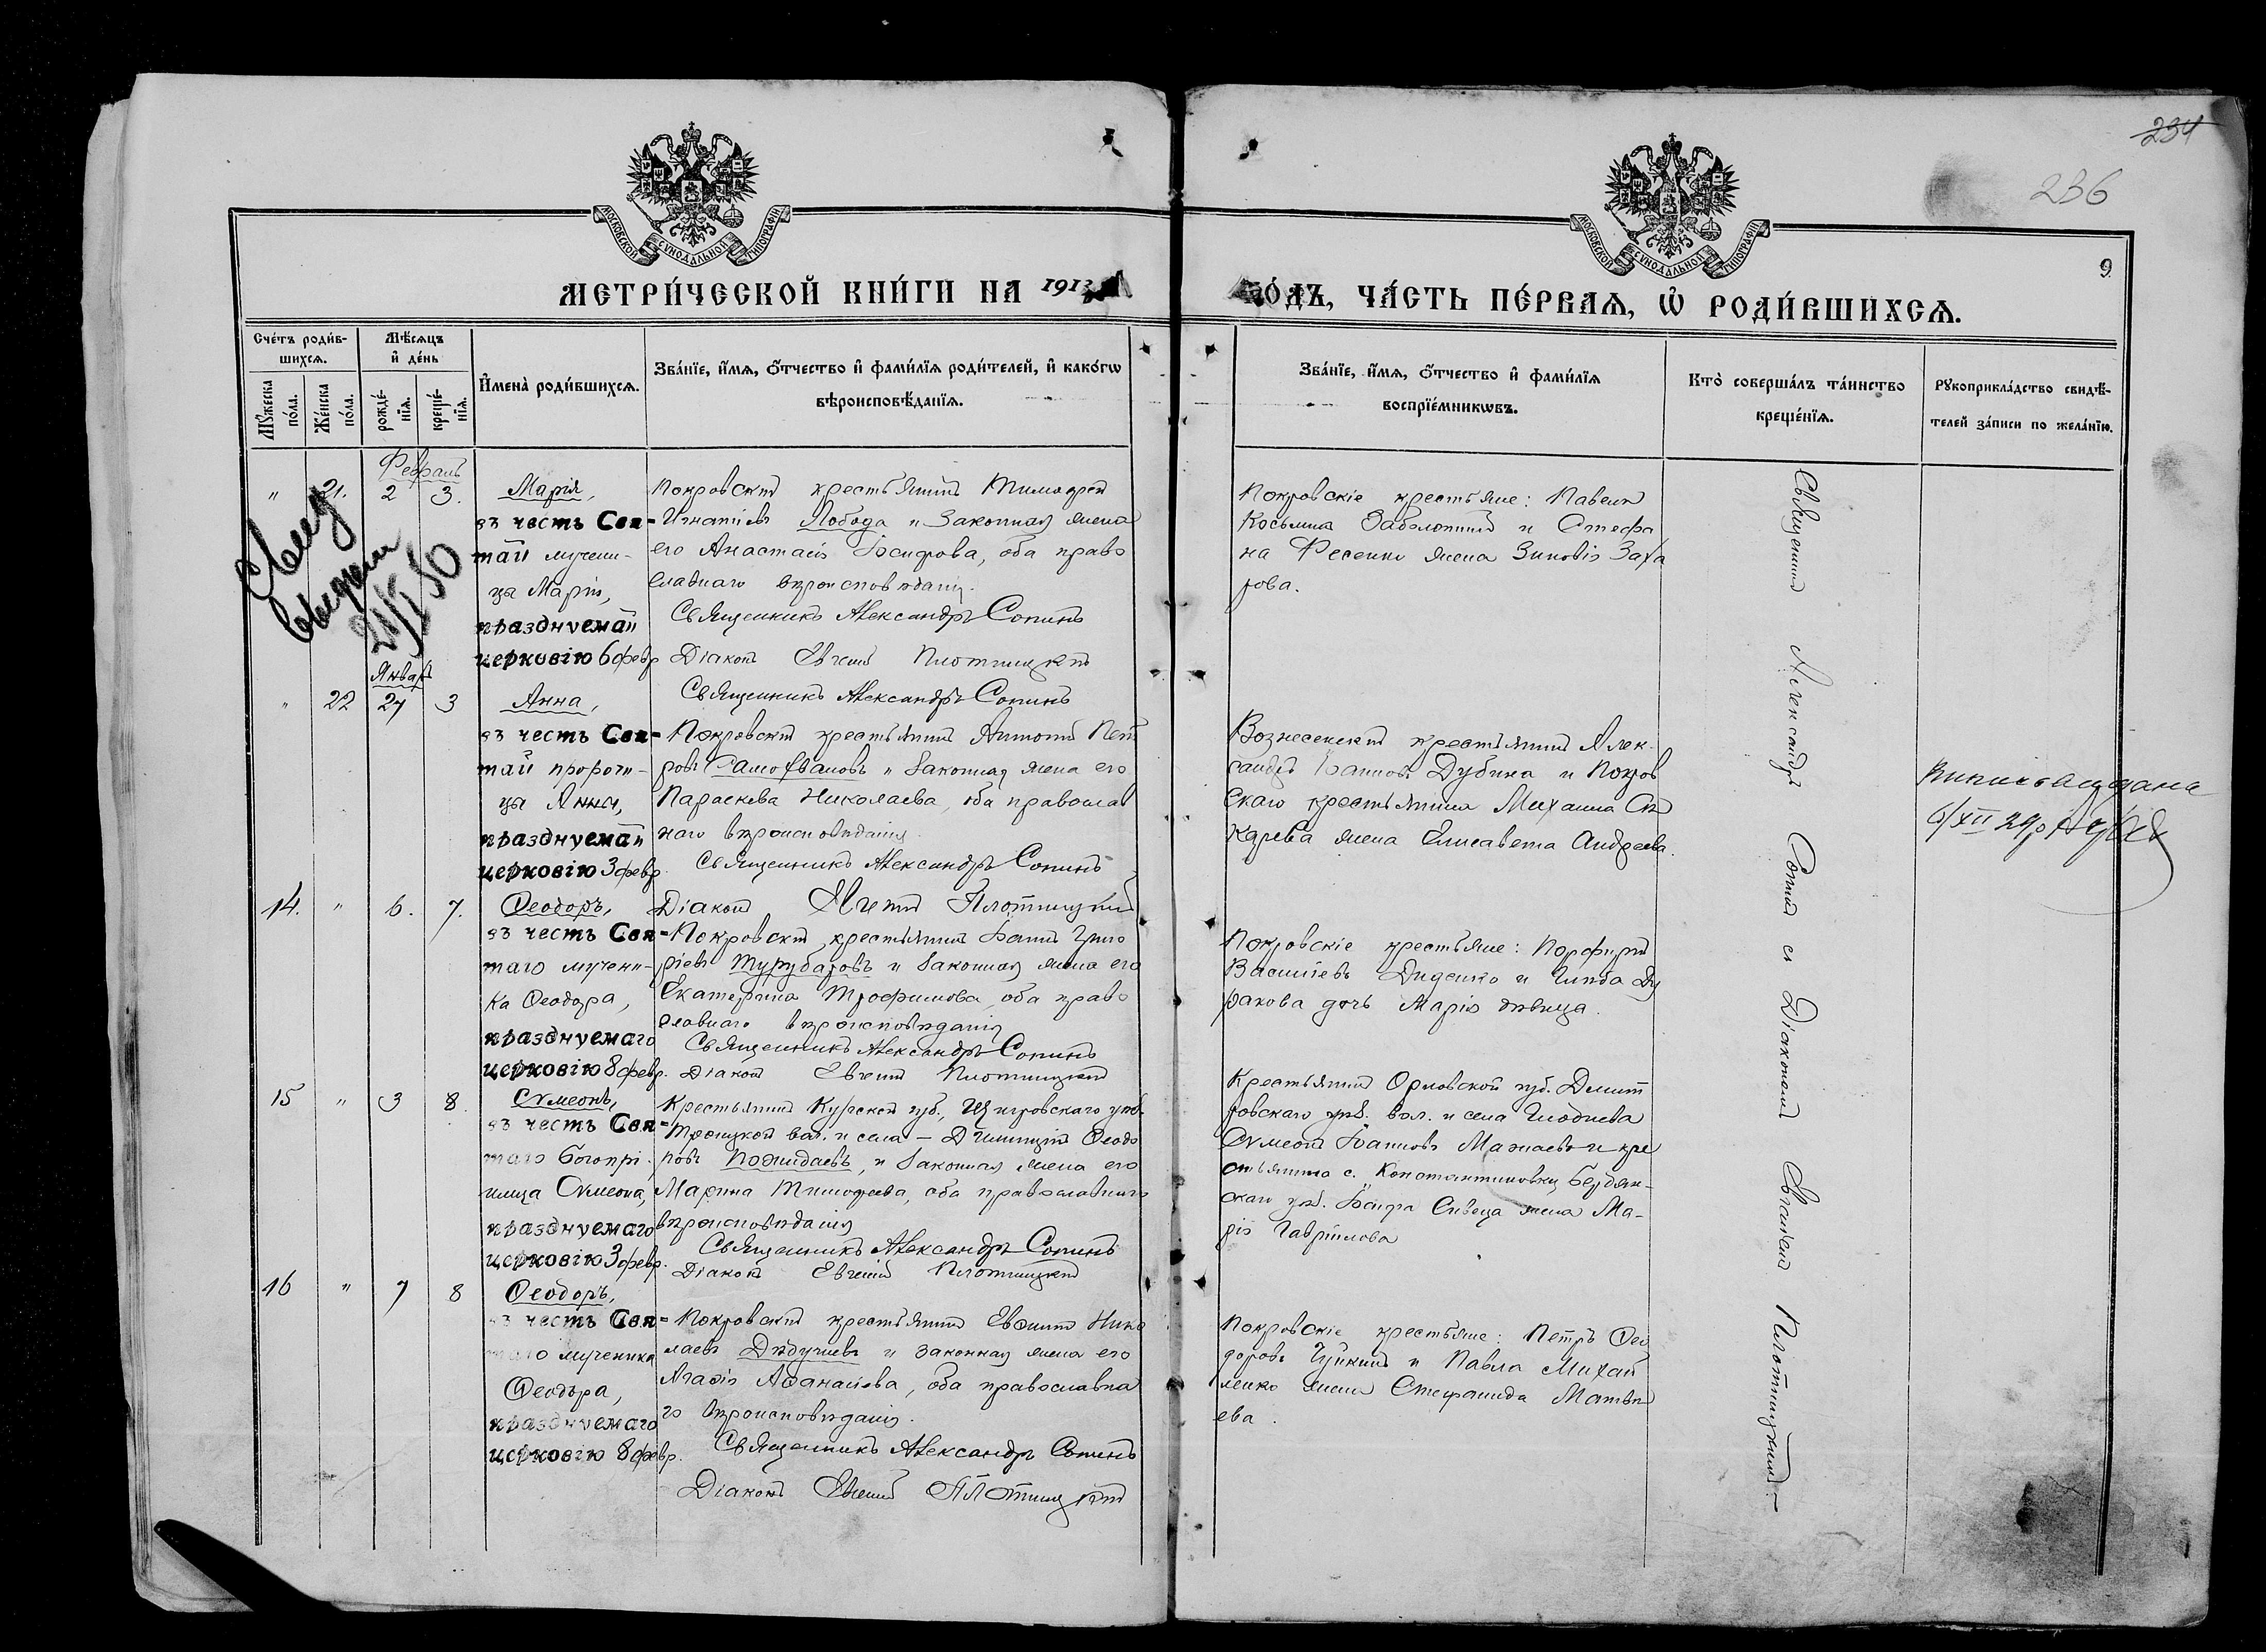 234
236
МОСКОВСКОЙ СУНОДАЛЬНОЙ ТИПОГРАФІИ
МОСКОВСКОЙ СУНОДАЛЬНОЙ ТИПОГРАФІИ
9
МЕТРИ́ЧЕСКОЙ КНИ́ГИ НА 1913
ГО́ДЪ, ЧА́СТЬ ПЕ́РВАѦ, Ѡ҆ РОДИ́ВШИХСѦ.
Сче́тъ роди́в-
шихсѧ.
Мѣ́сѧцъ
и҆ де́нь
Мꙋ́жеска
по́ла.
Же́нска
по́ла.
рожде́-
нїѧ.
креще́-
нїѧ.
И҆мена̀ роди́вшихсѧ.
Зва́нїе, и҆́мѧ, ѻ҆́тчество и҆ фами́лїѧ роди́телей, и҆ како́гѡ
вѣроисповѣ́данїѧ.
Зва́нїе, и҆́мѧ, ѻ҆́тчество и҆ фами́лїѧ
воспрїе́мникѡвъ.
Кто̀ соверша́лъ та́инство
креще́нїѧ.
Рꙋкоприкла́дство свидѣ́-
телей за́писи по жела́нїю.
Февраль
" 21. 2 3.
Марія,
въ честь Свя-
той мучени-
цы Маріи,
празднуемой
церковію 6 февр
Покровскій крестьянинъ Тимофей
Игнатіевъ Лобода и законная жена
его Анастасія Іосифова, оба право
славнаго вѣроисповѣданія.
Священникъ Александръ Сопинъ
Діаконъ Евгеній Плотницкій
Покровскіе крестьяне: Павелъ
Косьминъ Заболотный и Стефа
на Фесенко жена Зиновія Заха
рова.
Январь
" 22 27 3
Анна,
въ честь Свя-
той пророчи-
цы Анны,
празднуемой
церковію 3 февр.
Священникъ Александръ Сопинъ
Покровскій крестьянинъ Антоній Пет
ровъ Самофаловъ и законная жена его
Параскева Николаева, оба православ
наго вѣроисповѣданія.
Священникъ Александръ Сопинъ
Діаконъ Евгеній Плотницкій
Вознесенскій крестьянинъ Алек-
сандръ Іоанновъ Дубина и Покров
скаго крестьянина Михаила
жена Елисавета Андреева.
14. " 6. 7.
Ѳеодоръ,
въ честь Свя-
таго мучени-
ка Ѳеодора,
празднуемаго
церковію 8 февр.
Покровскій крестьянинъ Іоаннъ Григо
ріевъ Турубаровъ и законная жена его
Екатерина Трофимова, оба право
славнаго вѣроисповѣданія
Священникъ Александръ Сопинъ
Діаконъ Евгеній Плотницкій
Покровскіе крестьяне: Порфирій
Василіевъ Диденко и Глѣба Ду
ракова дочь Марія дѣвица.
15 " 3 8.
Сѵмеонъ,
въ честь Свя-
таго Богопрі-
имца Сѵмеона,
празднуемаго
церковію 3 февр.
Крестьянинъ Курской губ., Щигровскаго уѣз.
Троицкой вол. и села - Димитрій Ѳеодо
ровъ Пожидаевъ, и законная жена его
Марина Тимофеева, оба православнаго
вѣроисповѣданія
Священникъ Александръ Сопинъ
Діаконъ Евгеній Плотницкій
Крестьянинъ Орловской губ. Дмит
ровскаго уѣз. вол. и села Глоднева
Сѵмеонъ Іоанновъ Мажаевъ и кре
стьянина с. Константиновки Бердян-
скаго уѣз. Іосифа Сивеца жена Ма-
рія Гавріилова
16 " 7 8
Ѳеодоръ,
въ честь Свя-
таго мученика
Ѳеодора,
празднуемаго
церковію 8 февр.
Покровскій крестьянинъ Евѳимій Нико
лаевъ Дѣдушевъ и законная жена его
Агафія Аѳанасіева, оба православна
го вѣроисповѣданія.
Священникъ Александръ Сопинъ
Діаконъ Евгеній Плотницкій
Покровскіе крестьяне: Петръ Ѳео
доровъ Чуйкинъ и Павла Михай
ленко жена Стефанида Матвѣ
ева.
Священникъ Александръ Сопинъ съ Діакономъ Евгеніемъ Плотницкимъ